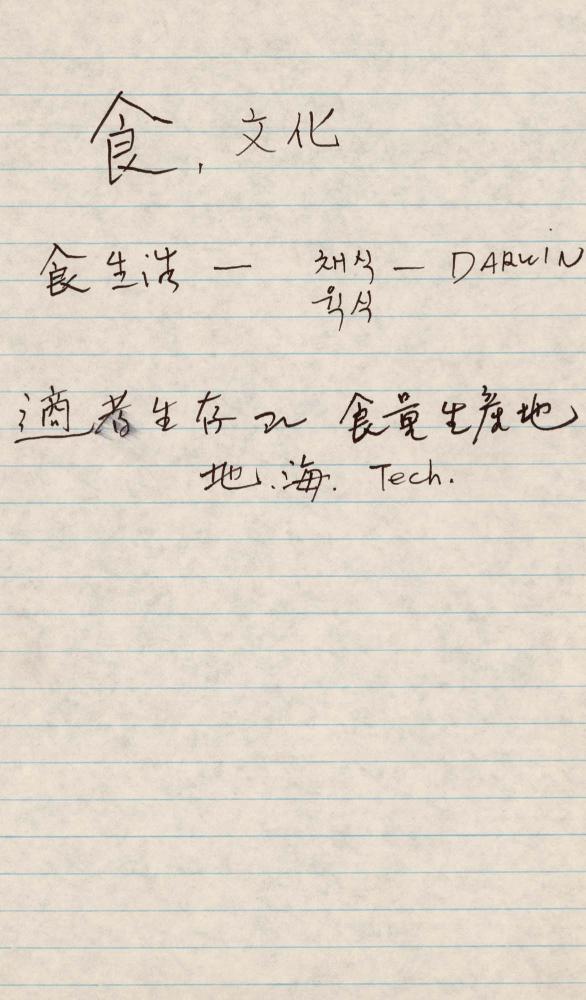 食, 文化
食生活 — 채식 — DARWIN
육식
適者生存고 食量生産地
地.海. Tech.